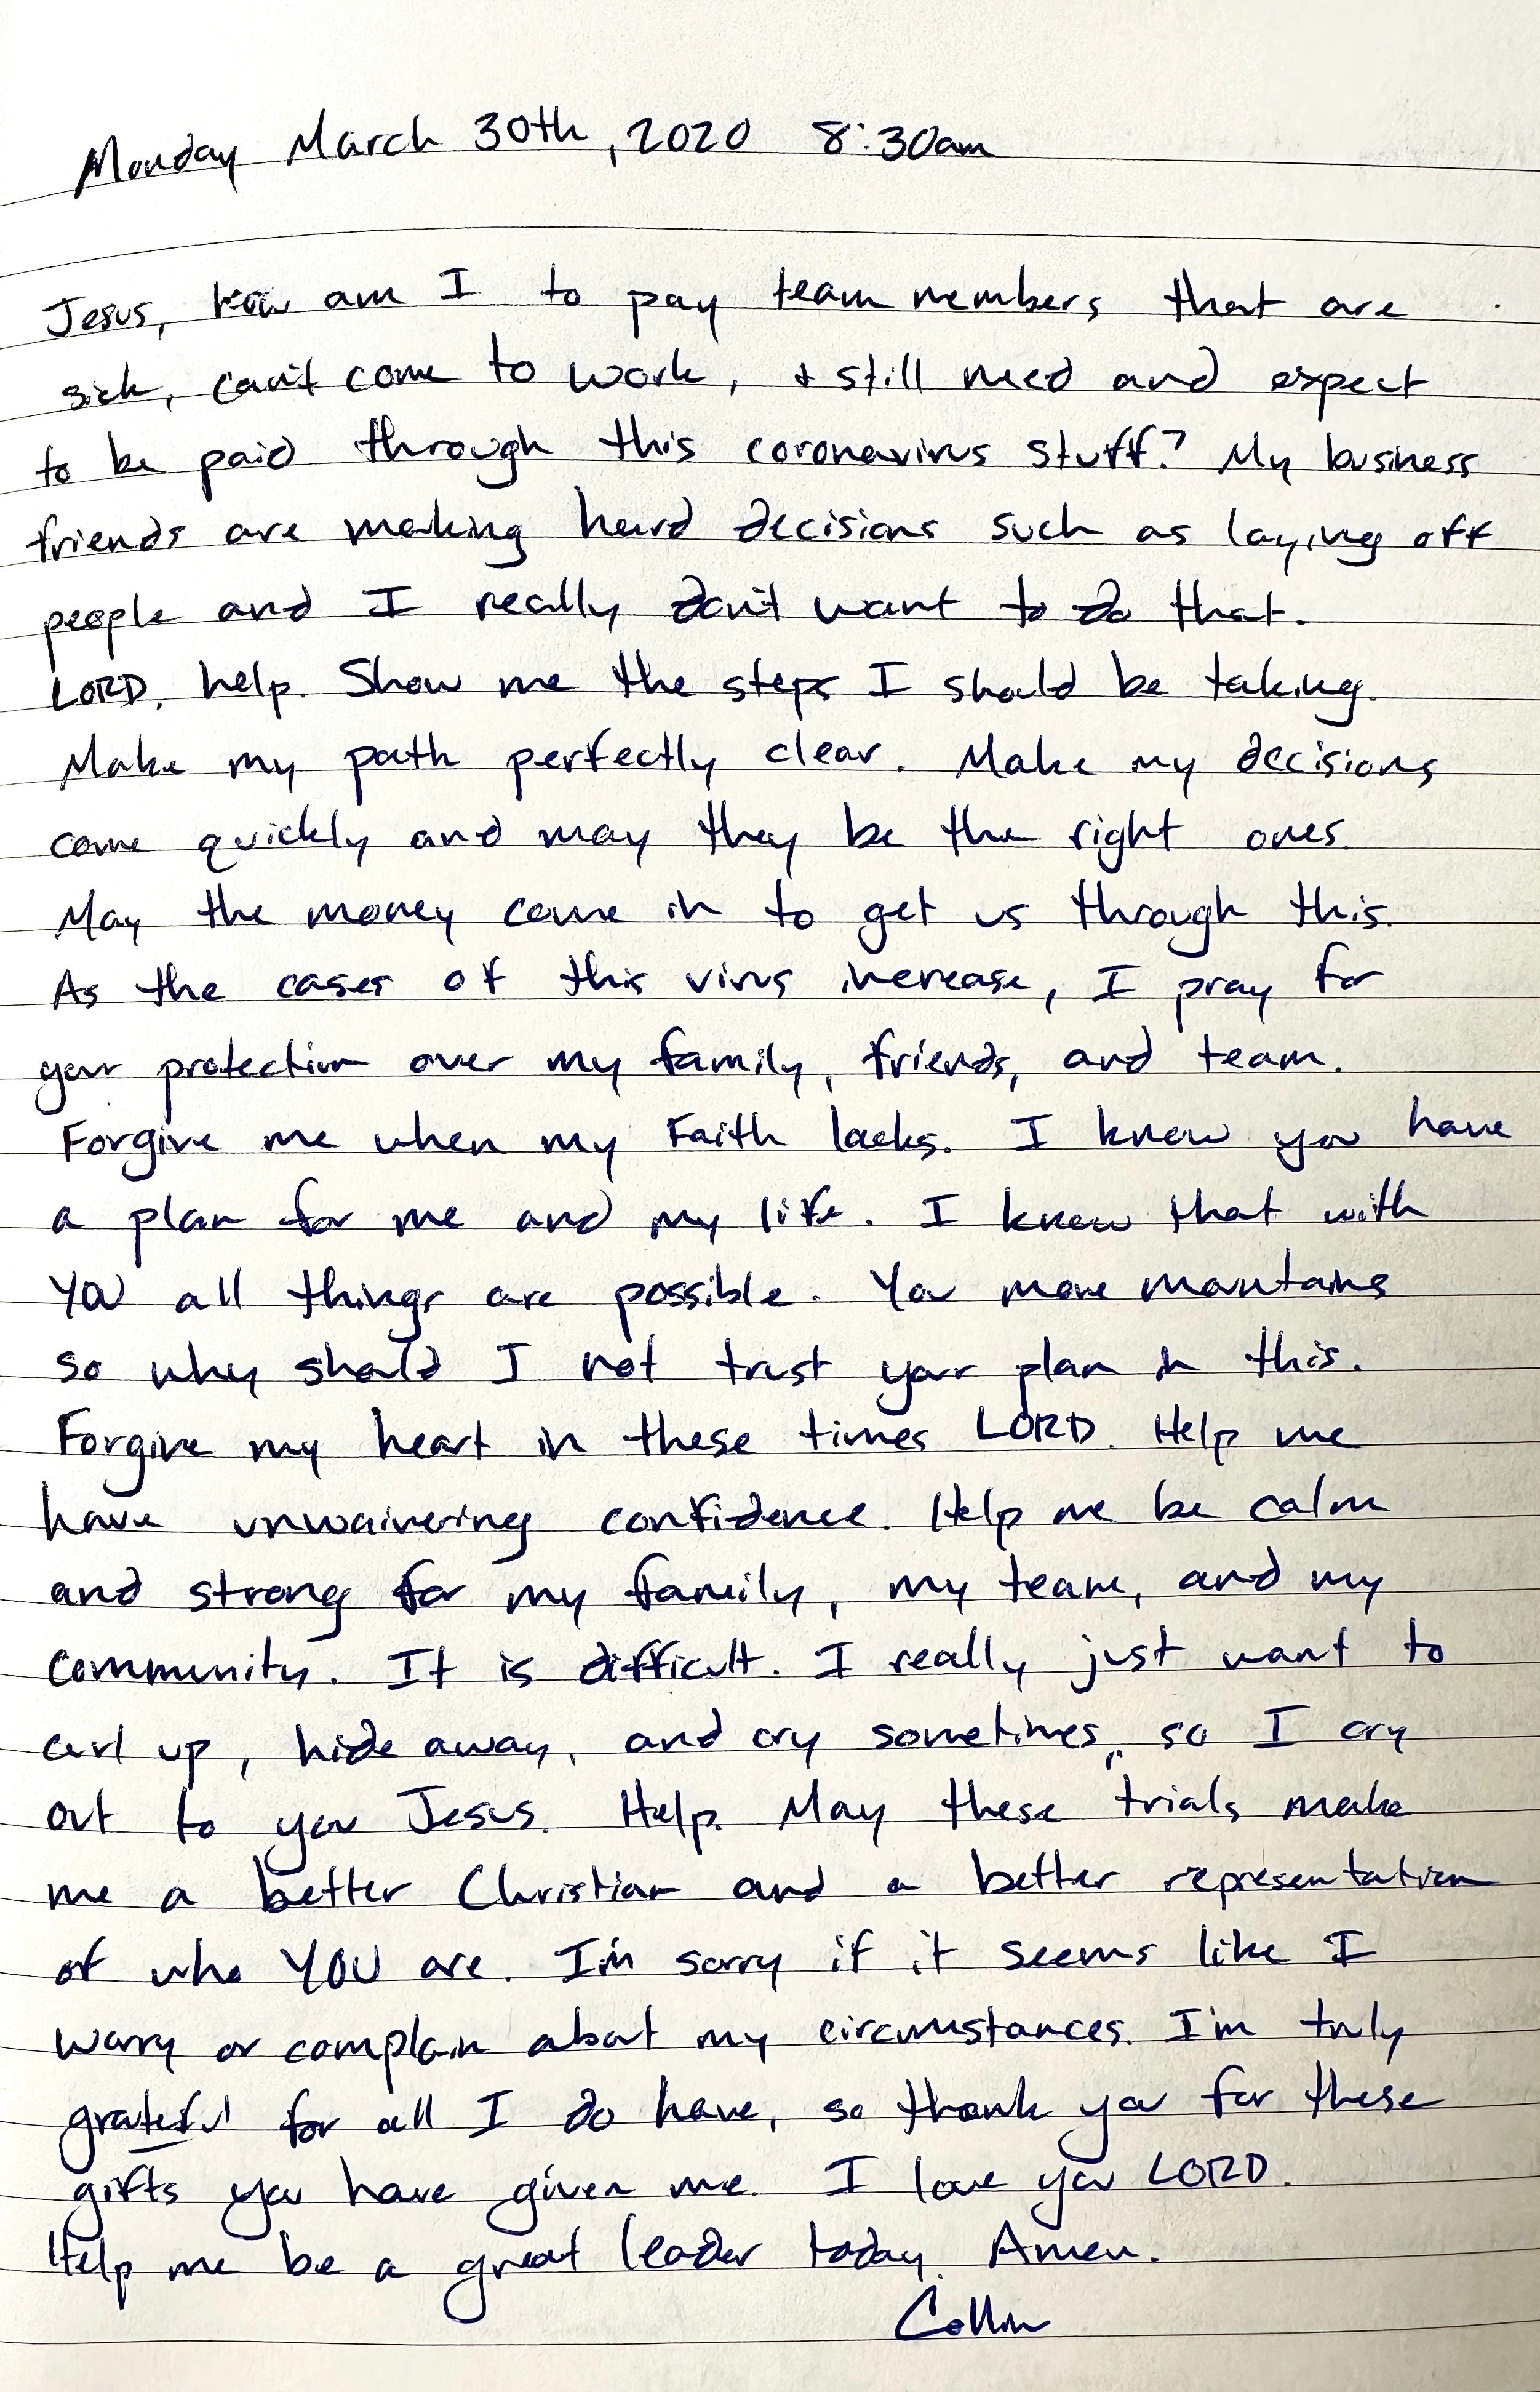 Monday March 30th, 2020 8:30am
Jesus, how am I to pay team members that are
sick, can't come to work, & still need and expect
to be paid through this coronavirus stuff? My business
friends are making hard decisions such as laying off
people and I really don't want to do that.
LORD, help. Show me the steps I should be taking.
Make my path perfectly clear. Make my decisions
come quickly and may they be the right ones.
May the money come in to get us through this.
As the cases of this virus increase, I pray for
your protection over my family, friends, and team.
Forgive me when my Faith lacks. I know you have
a plan for me and my life. I know that with
YOU all things are possible. You move mountains
so why should I not trust your plan in this.
Forgive my heart in these times LORD. Help me
have unwaivering confidence. Help me be calm
and strong for my family, my team, and my
community. It is difficult. I really just want to
curl up, hide away, and cry sometimes, so I cry
out to you Jesus. Help. May these trials make
me a better Christian and a better representation
of who YOU are. I'm sorry if it seems like I
worry or complain about my circumstances. I'm truly
grateful for all I do have, so thank you for these
gifts you have given me. I love you LORD.
Help me be a great leader today. Amen.
Collin